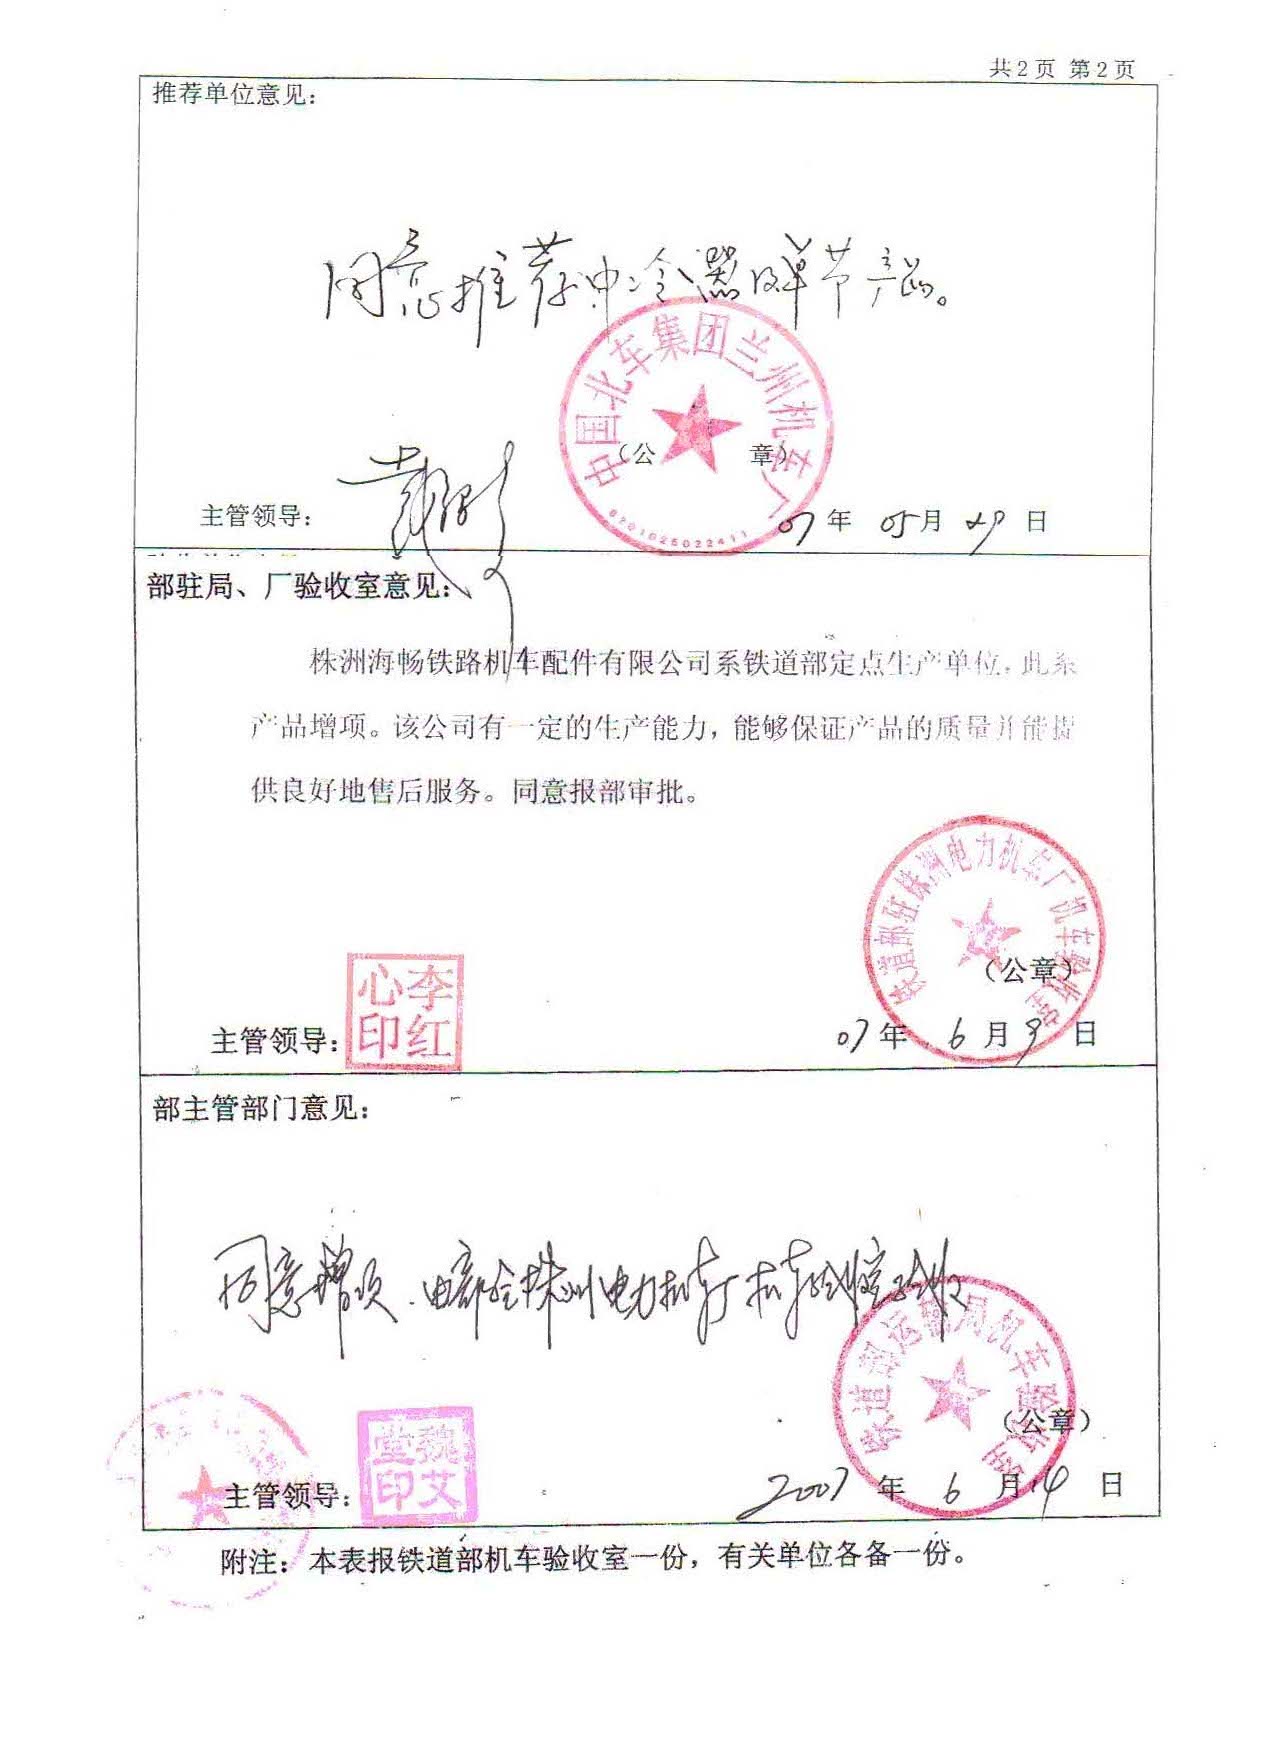 共2页 第2页
推荐单位意见：
同意推荐中冷器及单节产品。
中国北车集团兰州机车厂
（公 章）
6201025022411
主管领导： 07年 05月 29日
部驻局、厂验收室意见：
株洲海畅铁路机车配件有限公司系铁道部定点生产单位，此系
产品增项。该公司有一定的生产能力，能够保证产品的质量并能提
供良好地售后服务。同意报部审批。
铁道部驻株洲电力机车厂机车验收室
（公章）
李红心印
主管领导： 07年 6月 日
部主管部门意见：
同意增项，由部驻株洲电力机车厂机车验收室验收
铁道部运输局机车验收室
（公章）
魏艾堂印
主管领导： 2007年 6月14日
附注：本表报铁道部机车验收室一份，有关单位各备一份。